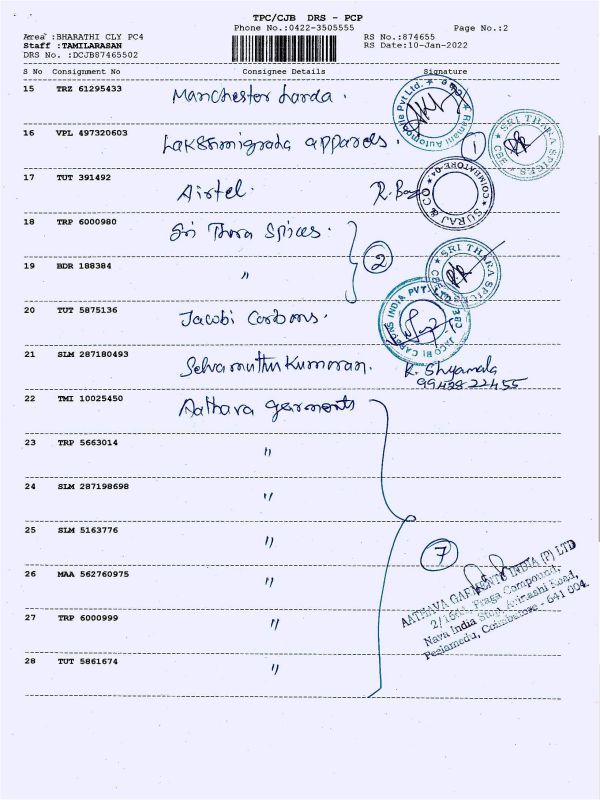 TPC/CJB DRS - PCP
Phone No.:0422-3505555
Page No.:2
Area :BHARATHI CLY PC4
RS No.:874655
Staff :TAMILARASAN
RS Date:10-Jan-2022
DRS No. :DCJB87465502
S No Consignment No Consignee Details Signature
15 TRZ 61295433 Manchester honda.
Ramani Automobile Pvt Ltd. Cbe
16 VPL 497320603 Lakshmigrada apparels. 1
SRI THARA SPICES CBE
17 TUT 391492 Airtel.
SURAJ & CO COIMBATORE-04
18 TRP 6000980 Sri Thara Spices. 2
SRI THARA SPICES CBE
19 BDR 188384 "
20 TUT 5875136 Jacobi Carbons.
JACOBI CARBONS INDIA PVT. LTD CBE
21 SLM 287180493 Selvamuthu Kumaran. K. Shyamala
22 TMI 10025450 Aathava garments
23 TRP 5663014 "
24 SLM 287198698 "
25 SLM 5163776 "
7
26 MAA 562760975 "
27 TRP 6000999 "
28 TUT 5861674 "
AATHAVA GARMENTS INDIA (P) LTD
Fraga Compound,
Nava India Stop, Avinashi Road,
Peelamedu, Coimbatore - 641 004.